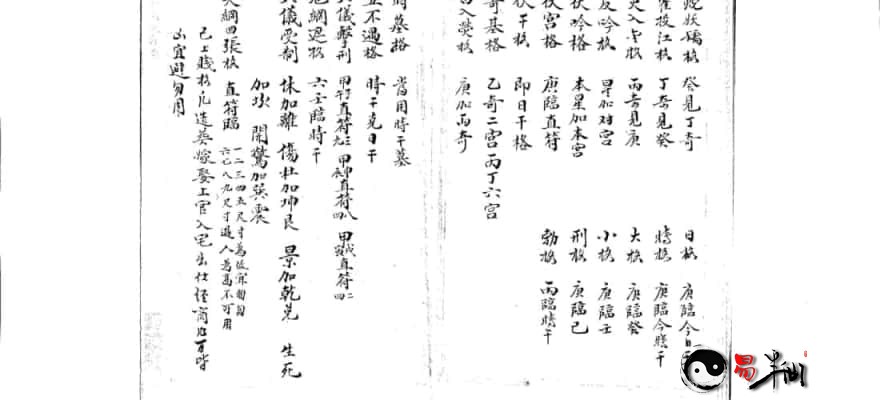 妖嬌格 癸見丁奇 日格 庚臨今
雀投江格 丁奇見癸 時格 庚臨今時干
入 格 丙奇見庚 大格 庚臨癸
反吟格 星加对宮 小格 庚臨壬
伏吟格 本星加本宮 刑格 庚臨己
伏宮格 庚臨直符 勃格 丙臨時干
伏干格 即日干格
奇墓格 乙奇二宮丙丁六宮
入熒格 庚加丙奇
時墓格 當用時干墓
五不遇格 時干克日干
儀擊刑 直符 甲申直符 直符
網遇格 六壬臨時干
儀受制 休加離 傷杜加坤艮 景加乾兌 生死
加坎 開驚加巽震
天網四張格 直符臨 一二三四五尺寸為低宜匍匐
六七八九尺寸過人為高不可用
已上賤格凡造葬嫁娶上官入宅出仕經商 百皆
凶宜避勿用
易半仙